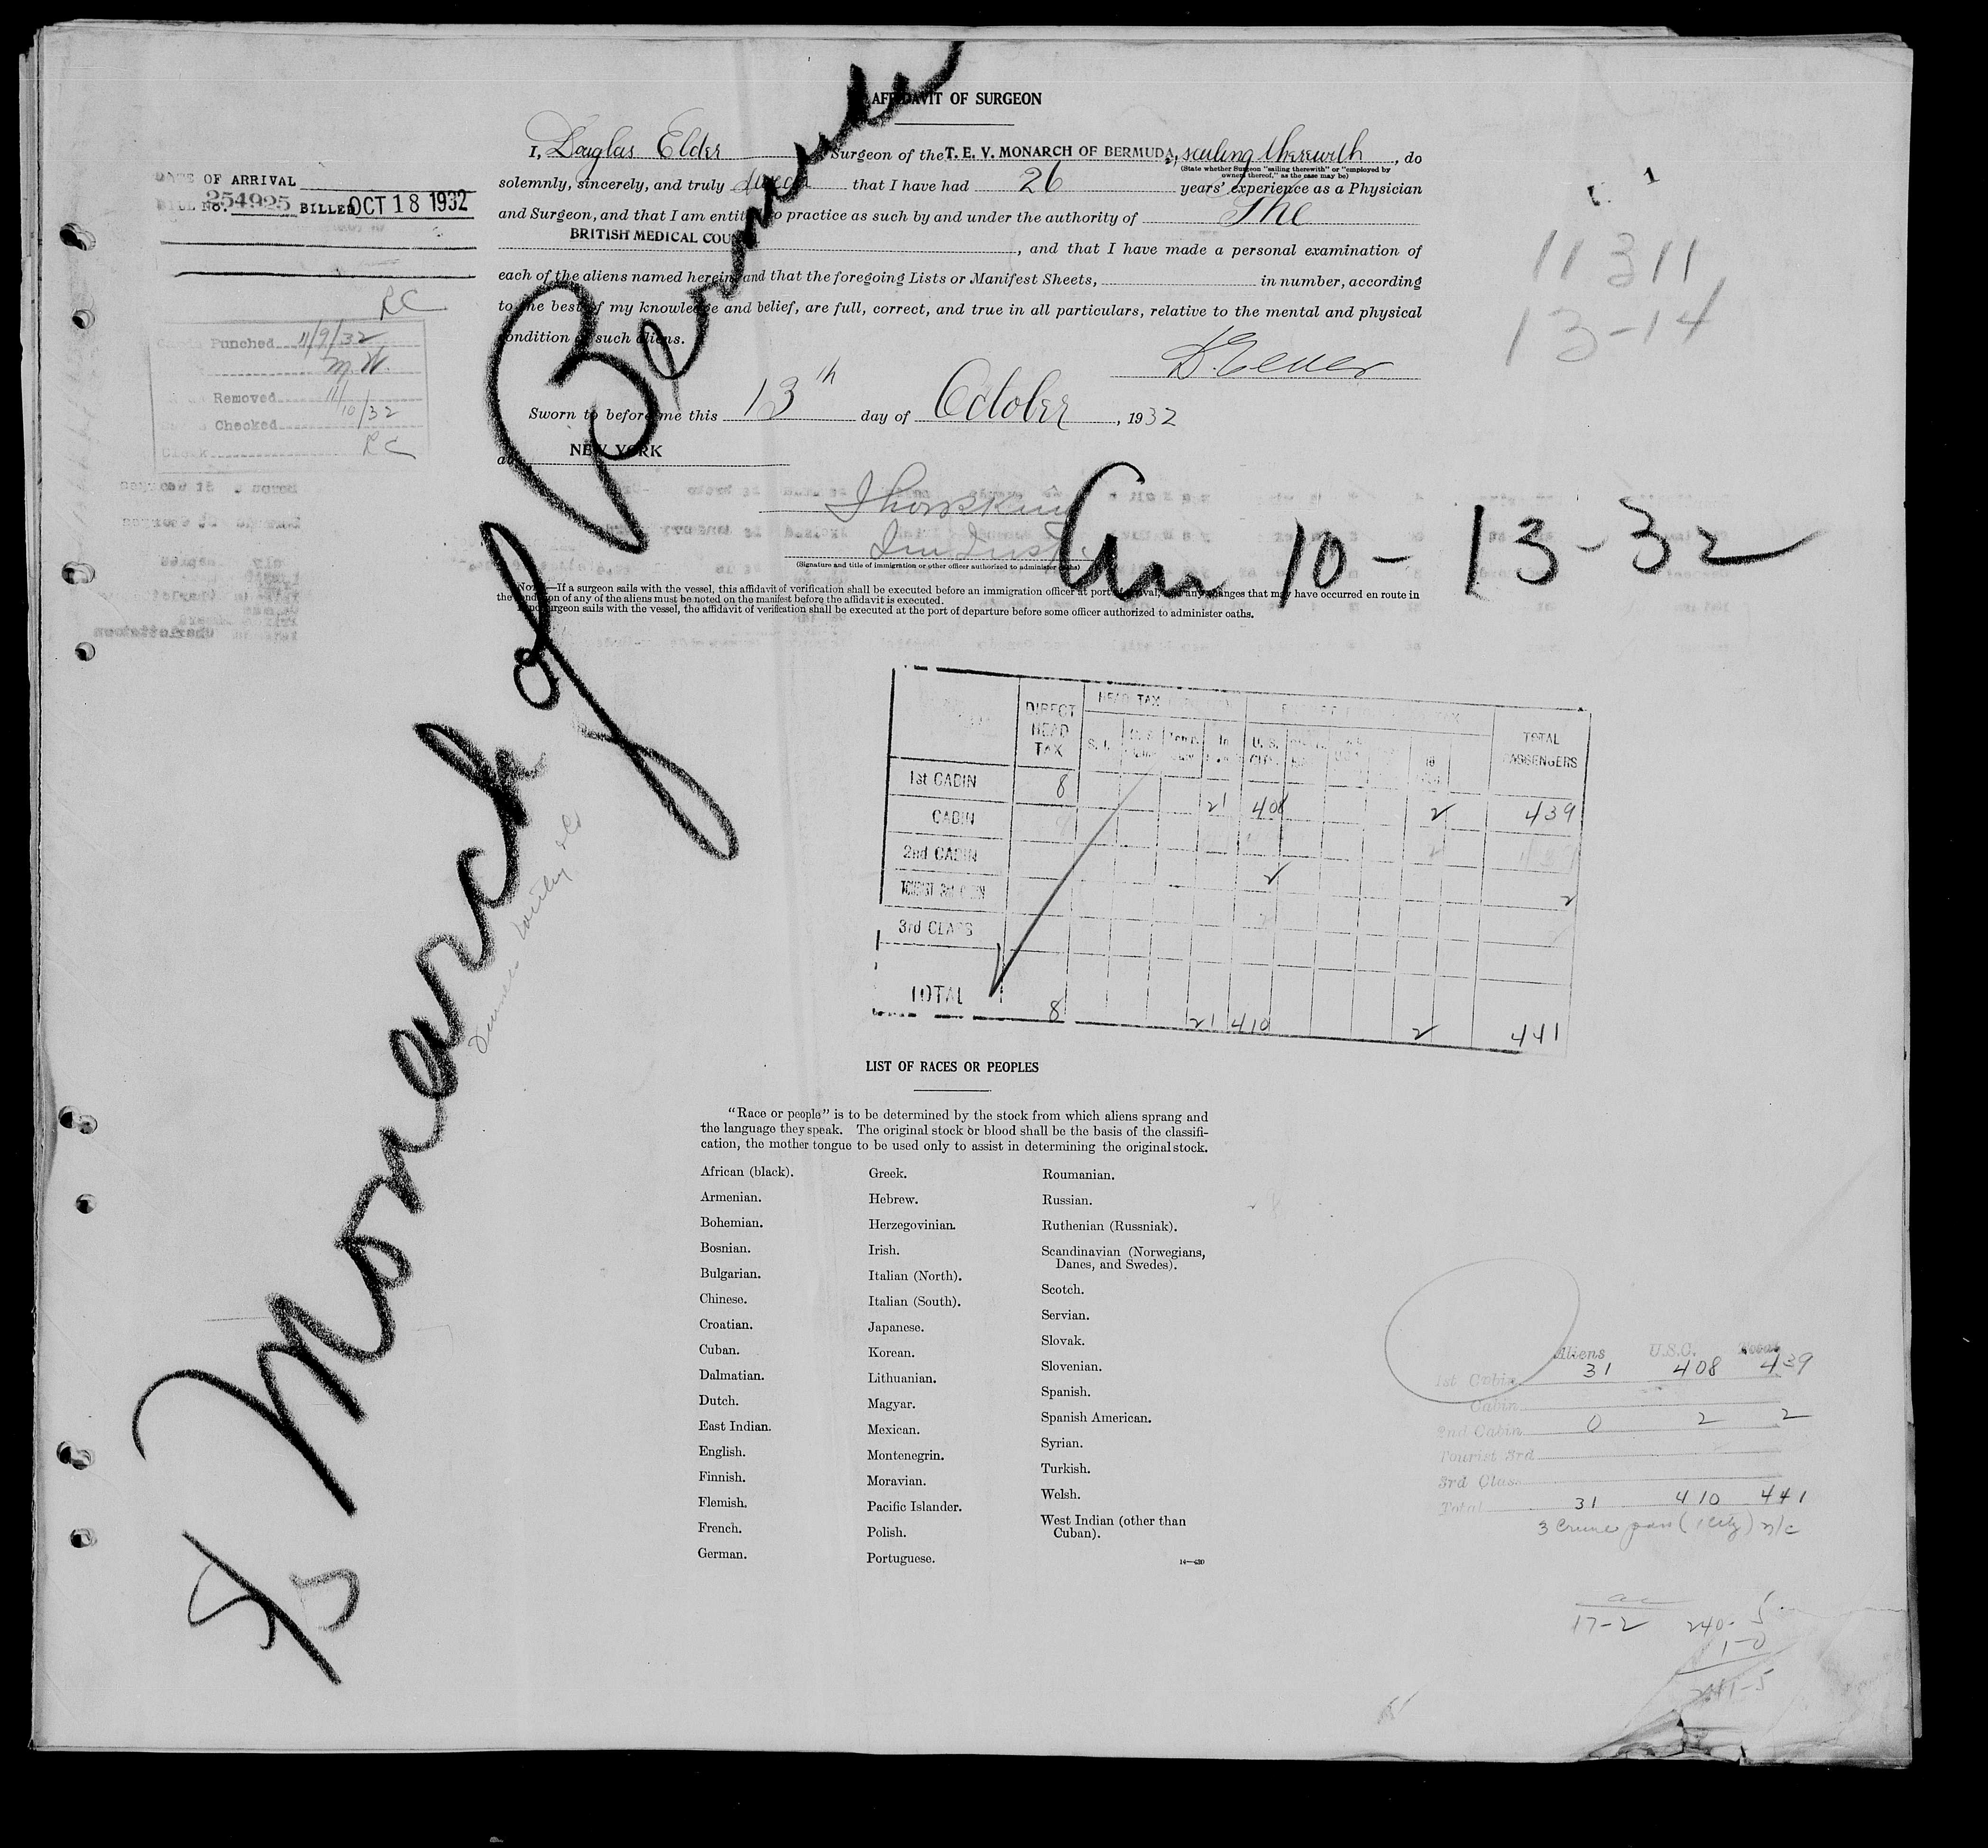 AFFIDAVIT OF SURGEON
I, Douglas Elder Surgeon of the T. E. V. MONARCH OF BERMUDA, sailing therewith, do
(State whether Surgeon "sailing therewith" or "employed by
owners thereof," as the case may be)
solemnly, sincerely, and truly swear that I have had 26 years' experience as a Physician
and Surgeon, and that I am entitled to practice as such by and under the authority of The
BRITISH MEDICAL COU , and that I have made a personal examination of
each of the aliens named herein, and that the foregoing Lists or Manifest Sheets, in number, according
to the best of my knowledge and belief, are full, correct, and true in all particulars, relative to the mental and physical
condition of such aliens.
D. Elder
Sworn to before me this 13th day of October, 1932
at NEW YORK
(Signature and title of immigration or other officer authorized to administer oaths)
NOTE.—If a surgeon sails with the vessel, this affidavit of verification shall be executed before an immigration officer at port of arrival, and any changes that may have occurred en route in
the condition of any of the aliens must be noted on the manifest before the affidavit is executed.
If no surgeon sails with the vessel, the affidavit of verification shall be executed at the port of departure before some officer authorized to administer oaths.
DATE OF ARRIVAL
BILL No. 254925 BILLED OCT 18 1932
RC
Punched 11/9/32
M.W.
Removed 11/10/32
Checked
Clerk RC
1
11 311
13-14
S/S Monarch of Bermuda
Arr 10-13-32
DIRECT HEAD TAX
HEAD TAX
TOTAL PASSENGERS
1st CABIN 8 21 408 2 439
CABIN
2nd CABIN 2 2
TOURIST 3rd CABIN
3rd CLASS
TOTAL 8 21 410 2 441
LIST OF RACES OR PEOPLES
"Race or people" is to be determined by the stock from which aliens sprang and
the language they speak. The original stock or blood shall be the basis of the classifi-
cation, the mother tongue to be used only to assist in determining the original stock.
African (black).
Armenian.
Bohemian.
Bosnian.
Bulgarian.
Chinese.
Croatian.
Cuban.
Dalmatian.
Dutch.
East Indian.
English.
Finnish.
Flemish.
French.
German.
Greek.
Hebrew.
Herzegovinian.
Irish.
Italian (North).
Italian (South).
Japanese.
Korean.
Lithuanian.
Magyar.
Mexican.
Montenegrin.
Moravian.
Pacific Islander.
Polish.
Portuguese.
Roumanian.
Russian.
Ruthenian (Russniak).
Scandinavian (Norwegians,
Danes, and Swedes).
Scotch.
Servian.
Slovak.
Slovenian.
Spanish.
Spanish American.
Syrian.
Turkish.
Welsh.
West Indian (other than
Cuban).
Aliens U.S.C. Total
1st Cabin 31 408 439
Cabin
2nd Cabin 0 2 2
Tourist 3rd
3rd Class
Total 31 410 441
17-2 240-5
1-0
241-5